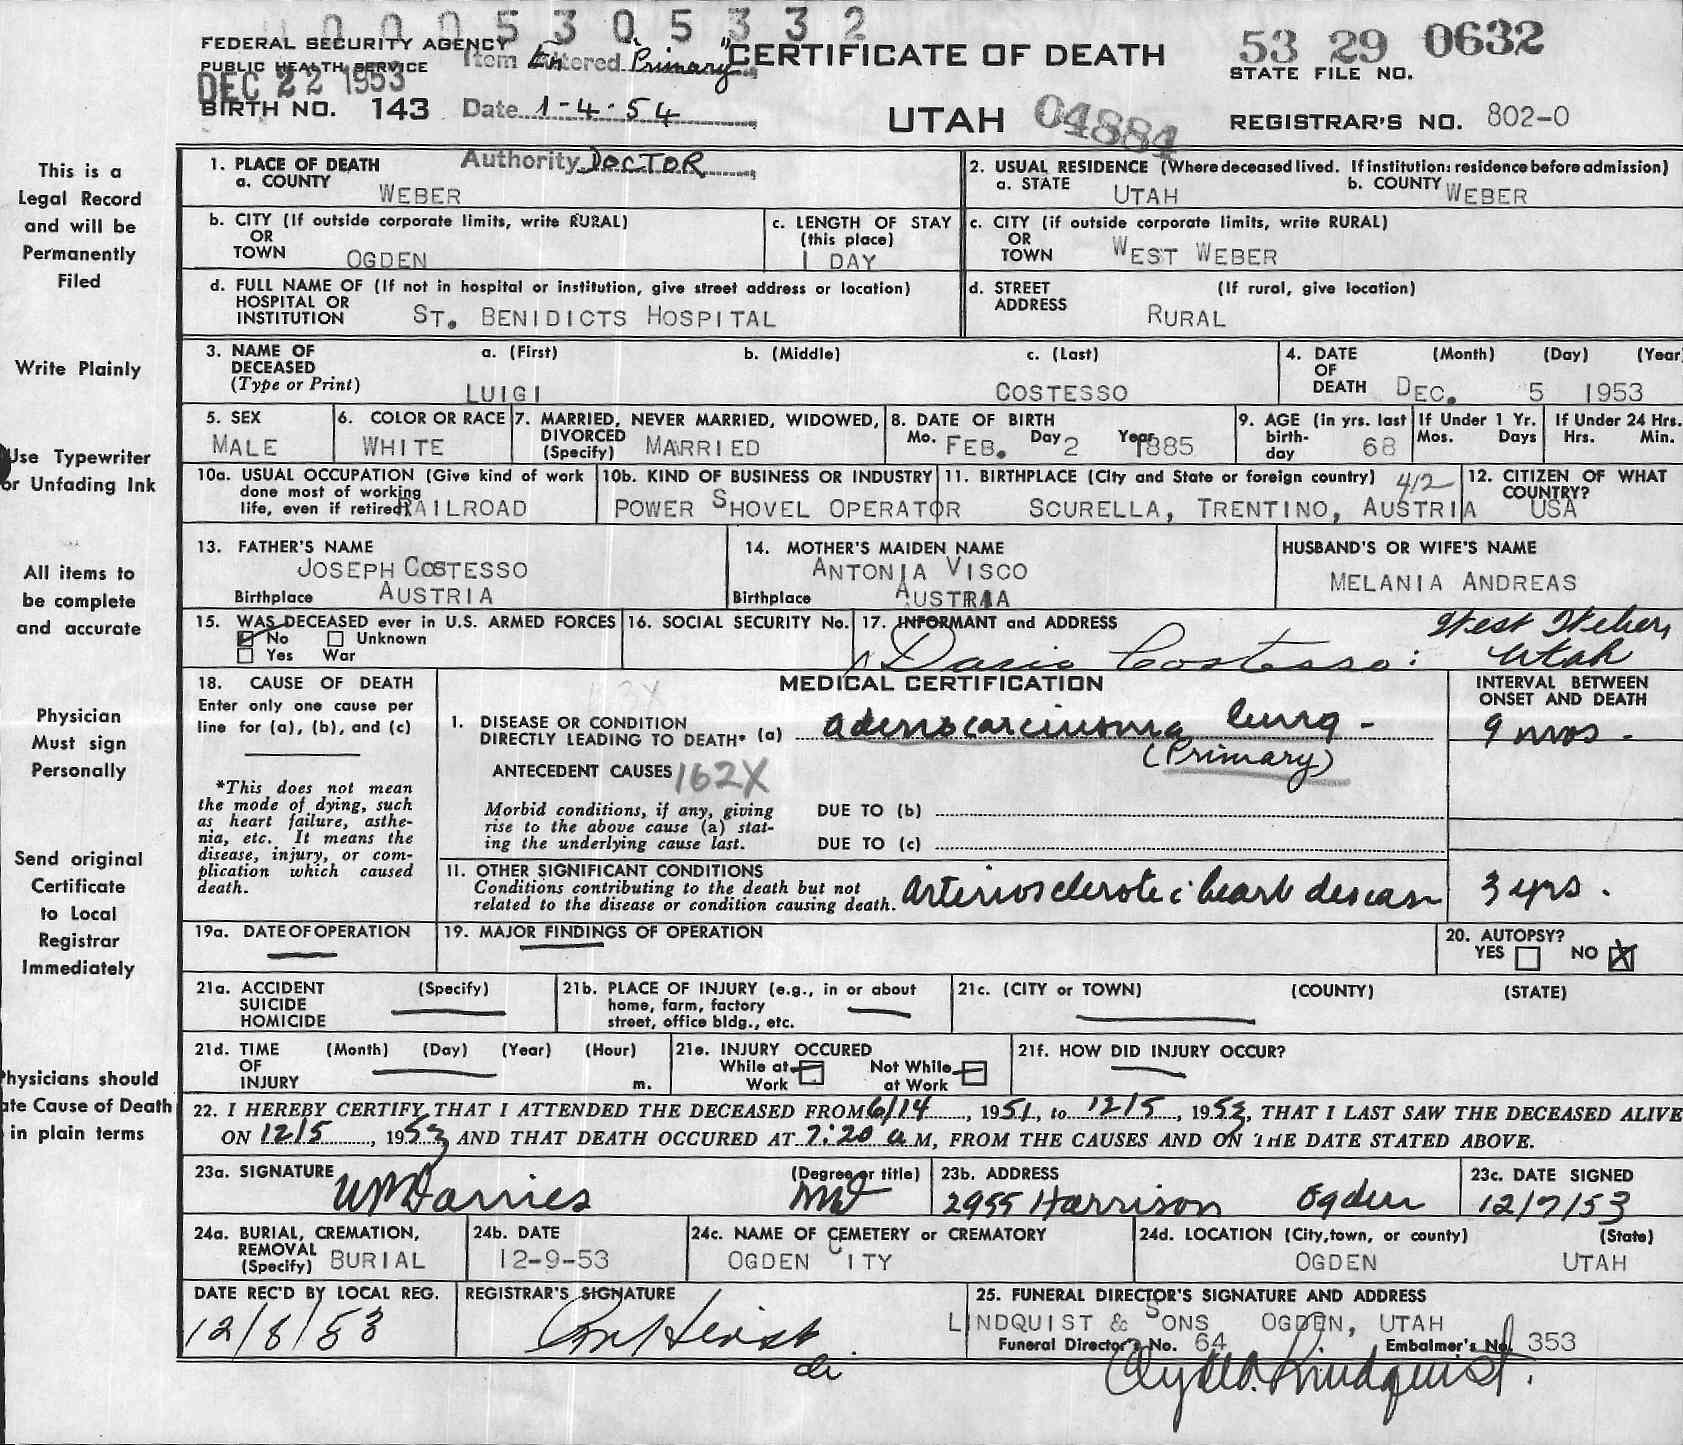 0005305332
FEDERAL SECURITY AGENCY
PUBLIC HEALTH SERVICE
DEC 22 1953
BIRTH NO. 143
Item Entered "Primary"
Date 1-4-54
Authority DOCTOR
CERTIFICATE OF DEATH
UTAH
04884
53 29 0632
STATE FILE NO.
REGISTRAR'S NO. 802-0
This is a
Legal Record
and will be
Permanently
Filed
Write Plainly
Use Typewriter
or Unfading Ink
All items to
be complete
and accurate
Physician
Must sign
Personally
Send original
Certificate
to Local
Registrar
Immediately
hysicians should
ate Cause of Death
in plain terms
1. PLACE OF DEATH
a. COUNTY
WEBER
2. USUAL RESIDENCE (Where deceased lived. If institution: residence before admission)
a. STATE UTAH b. COUNTY WEBER
b. CITY (If outside corporate limits, write RURAL)
OR
TOWN OGDEN
c. LENGTH OF STAY
(this place)
1 DAY
c. CITY (if outside corporate limits, write RURAL)
OR
TOWN WEST WEBER
d. FULL NAME OF (If not in hospital or institution, give street address or location)
HOSPITAL OR
INSTITUTION ST. BENIDICTS HOSPITAL
d. STREET (If rural, give location)
ADDRESS RURAL
3. NAME OF a. (First) b. (Middle) c. (Last)
DECEASED
(Type or Print) LUIGI COSTESSO
4. DATE (Month) (Day) (Year
OF
DEATH DEC. 5 1953
5. SEX
MALE
6. COLOR OR RACE
WHITE
7. MARRIED, NEVER MARRIED, WIDOWED,
DIVORCED
(Specify) MARRIED
8. DATE OF BIRTH
Mo. FEB. Day 2 Year 1885
9. AGE (in yrs. last
birth-
day 68
If Under 1 Yr.
Mos. Days
If Under 24 Hrs.
Hrs. Min.
10a. USUAL OCCUPATION (Give kind of work
done most of working
life, even if retired) RAILROAD
10b. KIND OF BUSINESS OR INDUSTRY
POWER SHOVEL OPERATOR
11. BIRTHPLACE (City and State or foreign country) 412
SCURELLA, TRENTINO, AUSTRIA
12. CITIZEN OF WHAT
COUNTRY?
USA
13. FATHER'S NAME
JOSEPH COSTESSO
Birthplace AUSTRIA
14. MOTHER'S MAIDEN NAME
ANTONIA VISCO
Birthplace AUSTRIA
HUSBAND'S OR WIFE'S NAME
MELANIA ANDREAS
15. WAS DECEASED ever in U.S. ARMED FORCES
No Unknown
Yes War
16. SOCIAL SECURITY No.
17. INFORMANT and ADDRESS
Dario Costesso: West Weber,
Utah
18. CAUSE OF DEATH
Enter only one cause per
line for (a), (b), and (c)
*This does not mean
the mode of dying, such
as heart failure, asthe-
nia, etc. It means the
disease, injury, or com-
plication which caused
death.
MEDICAL CERTIFICATION
INTERVAL BETWEEN
ONSET AND DEATH
1. DISEASE OR CONDITION
DIRECTLY LEADING TO DEATH* (a) adenocarcinoma lung - 9 mos.
(Primary)
ANTECEDENT CAUSES 162X
Morbid conditions, if any, giving
rise to the above cause (a) stat-
ing the underlying cause last.
DUE TO (b)
DUE TO (c)
11. OTHER SIGNIFICANT CONDITIONS
Conditions contributing to the death but not
related to the disease or condition causing death. Arteriosclerotic heart disease 3 yrs.
19a. DATE OF OPERATION
19. MAJOR FINDINGS OF OPERATION
20. AUTOPSY?
YES NO X
21a. ACCIDENT (Specify)
SUICIDE
HOMICIDE
21b. PLACE OF INJURY (e.g., in or about
home, farm, factory
street, office bldg., etc.
21c. (CITY or TOWN) (COUNTY) (STATE)
21d. TIME (Month) (Day) (Year) (Hour)
OF
INJURY m.
21e. INJURY OCCURED
While at Not While
Work at Work
21f. HOW DID INJURY OCCUR?
22. I HEREBY CERTIFY THAT I ATTENDED THE DECEASED FROM 6/14, 1951, to 12/5, 1953, THAT I LAST SAW THE DECEASED ALIVE
ON 12/5, 1953 AND THAT DEATH OCCURED AT 7:20 a M, FROM THE CAUSES AND ON THE DATE STATED ABOVE.
23a. SIGNATURE (Degree or title)
MD
23b. ADDRESS
2955 Harrison Ogden
23c. DATE SIGNED
12/7/53
24a. BURIAL, CREMATION,
REMOVAL
(Specify) BURIAL
24b. DATE
12-9-53
24c. NAME OF CEMETERY or CREMATORY
OGDEN CITY
24d. LOCATION (City, town, or county) (State)
OGDEN UTAH
DATE REC'D BY LOCAL REG.
12/8/53
REGISTRAR'S SIGNATURE
25. FUNERAL DIRECTOR'S SIGNATURE AND ADDRESS
LINDQUIST & SONS OGDEN, UTAH
Funeral Director's No. 64 Embalmer's No. 353
Clyde D. Lindquist.